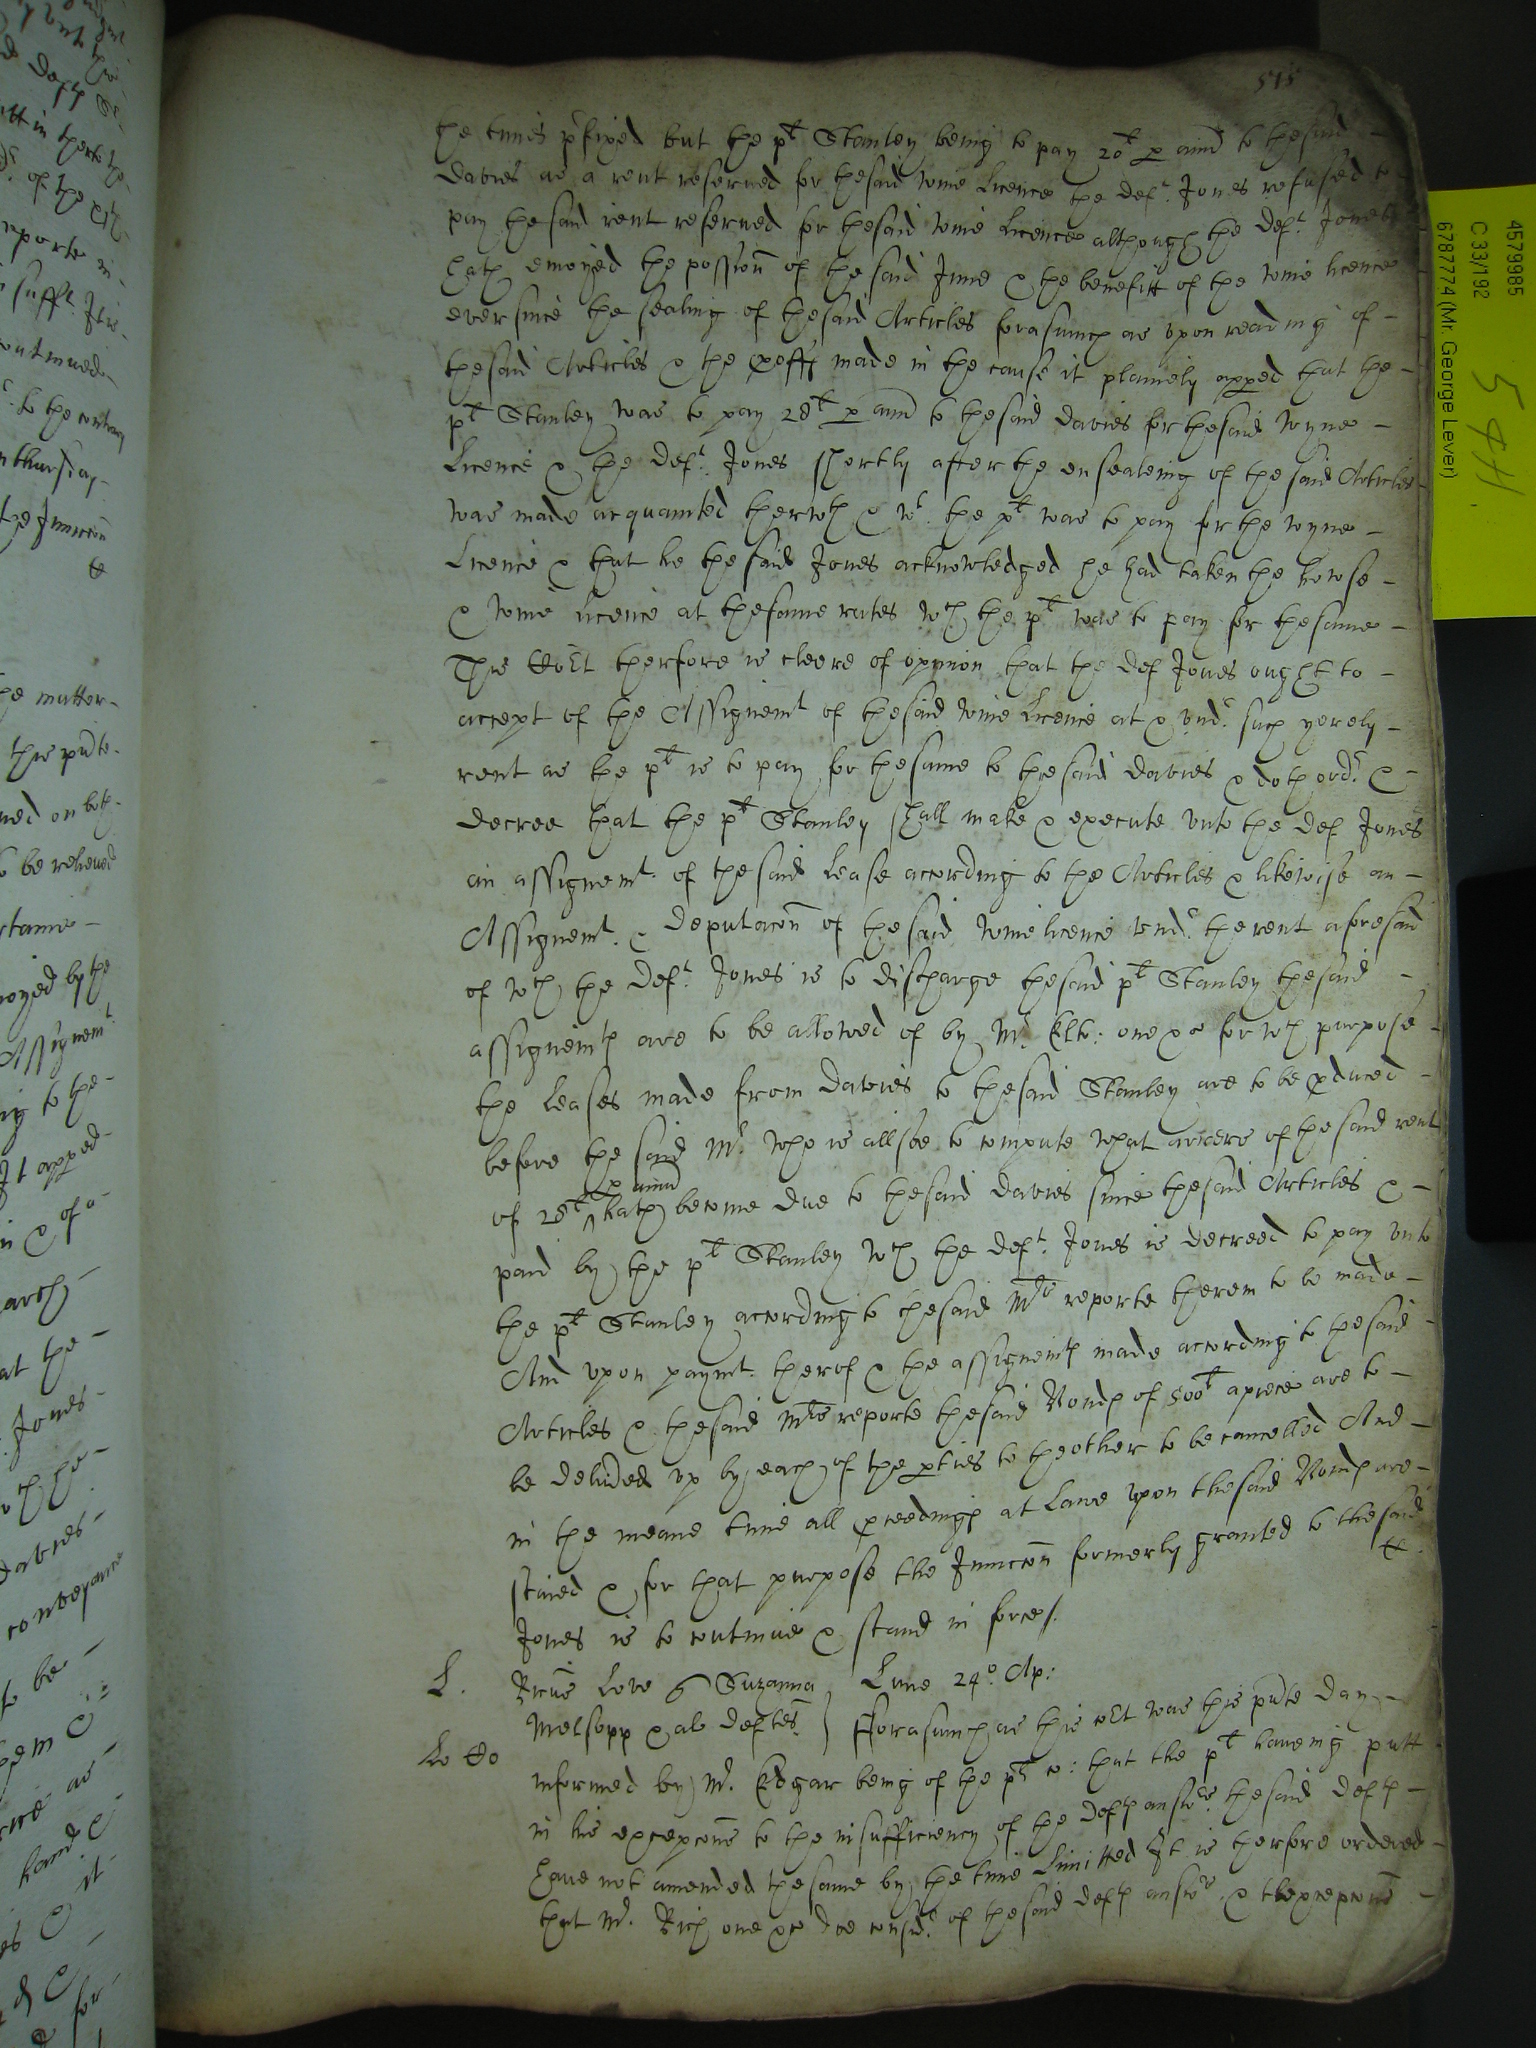 515
the times p'fixed but the plt Stanley being to pay 20l p ann to the said
Davies as a rent reserved for the said wine licence the Deft Jones refused to
pay the said rent reserved for the said wine licence although the Deft Jones
hath enioyed the possion of the said Inne & the benefitt of the wine licence
ever since the sealing of the said Articles forasmuch as upon reading of
the said Articles & the proffs made in the cause it plainely apped that the
plt Stanley was to pay 28l p ann to the said Davies for the said wyne
Licence & the Deft Jones shortly after the ensealeing of the said Articles
was made acquainted therwth & wt the plt was to pay for the wyne
Licence & that he the said Jones acknowledged he had taken the howse
& wine licence at the same rates wch the plt was to pay for the same
This Co:rt therfore is cleere of opinion that the Def Jones ought to
accept of the Assignemt of the said wine Licence at & und:r such yerely
rent as the plt is to pay for the same to the said Davies & doth ord:r &
decree that the plt Stanley shall make & execute unto the Def Jones
an assignemt of the said Lease according to the Articles & likewise an
Assignemt & Deputacon of the said wine licence und:r the rent aforesaid
of wch the Deft Jones is to discharge the said plt Stanley the said
assignemts are to be allowed of by Mr one &c for wch purpose
the Leases made from Davies to the said Stanley are to be pduced
before the said Mr who is allsoe to compute what arrers of the said rent
p ann
of 28l ^ hath become due to the said Davies since the said Articles &
paid by the plt Stanley wch the Deft Jones is decreed to pay unto
the plt Stanley according to the said Mrs reporte therein to be made
And upon paymt therof & the assignemts made according to the said
Articles & the said Mrs reporte the said Bonds of 500l apiece are to
be delived up by each of the pties to the other to be cancelled And
in the meane time all pceedings at Lawe upon the said Bonds are
staied & for that purpose the Iniuccon formerly granted to the said
Jones is to continue & stand in force /.
L.
Ricus Love q Suzanna
Melsopp & al Deftes
Lune 24o Ap:
Forasmuch as this co:rt was this pnte day
informed by Mr Edgar being of the plts co: that the plt haveing putt
in his excepcons to the insufficiency of the Defts answ:r the said Defts
have not amended the same by the time limitted It is therfore ordered
that Mr Rich one &c doe consid:r of the said Defts answ:r & the excepcons
4579985
C 33/192
6787774 (Mr. George Lever)